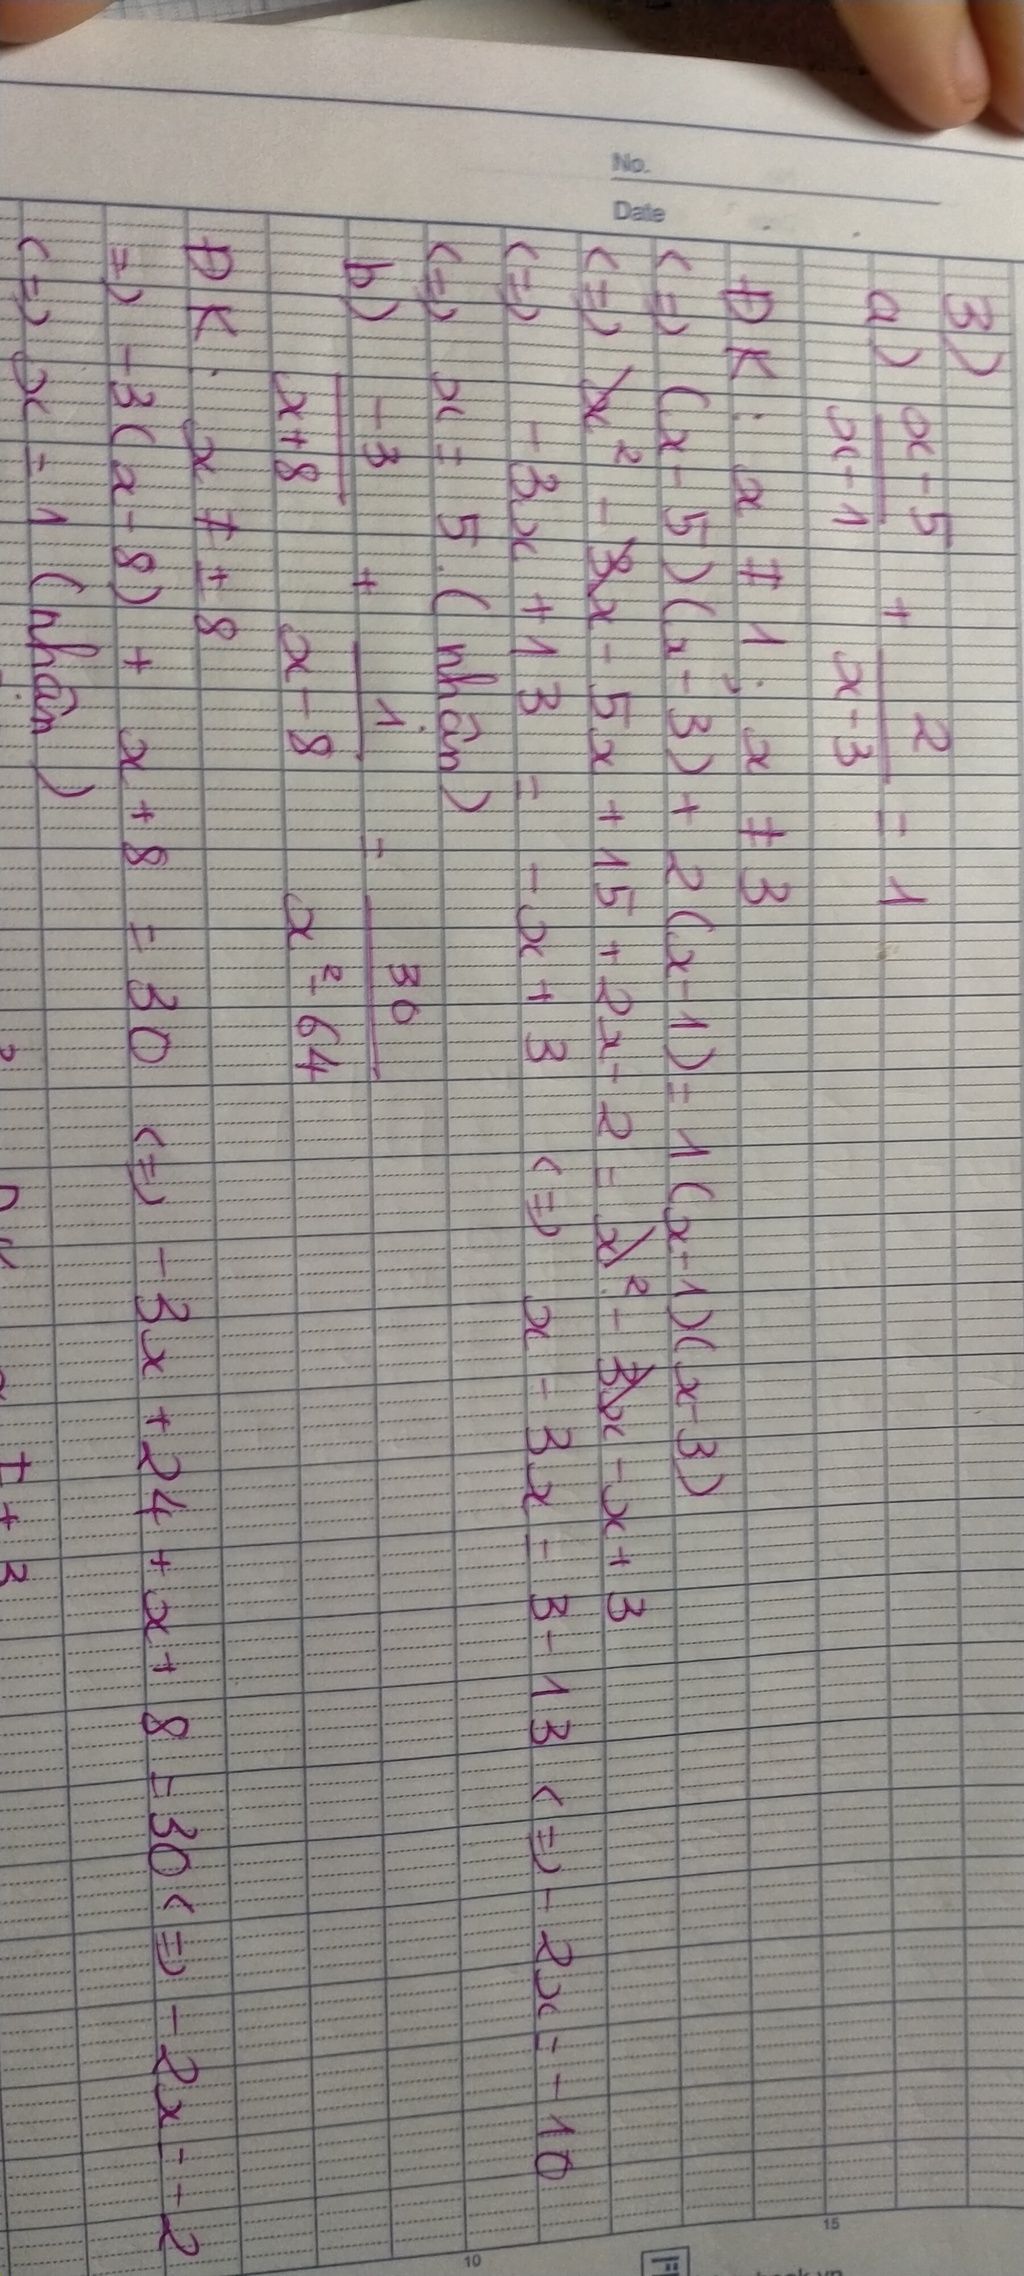 No.
Date
3)
a) x-5/x-1 + 2/x-3 = 1
ĐK: x ≠ 1; x ≠ 3
<=> (x-5)(x-3)+2(x-1)=1(x-1)(x-3)
<=> x² - 3x - 5x + 15 + 2x - 2 = x² - 3x - x + 3
<=> -3x + 13 = -x + 3 <=> x - 3x = 3 - 13 <=> -2x = -10
<=> x = 5. (nhận)
b) -3/x+8 + 1/x-8 = 30/x²-64
ĐK: x ≠ ±8
=> -3(x-8) + x+8 = 30 <=> -3x + 24 + x + 8 = 30 <=> -2x = -2
<=> x = 1 (nhận)
15
10